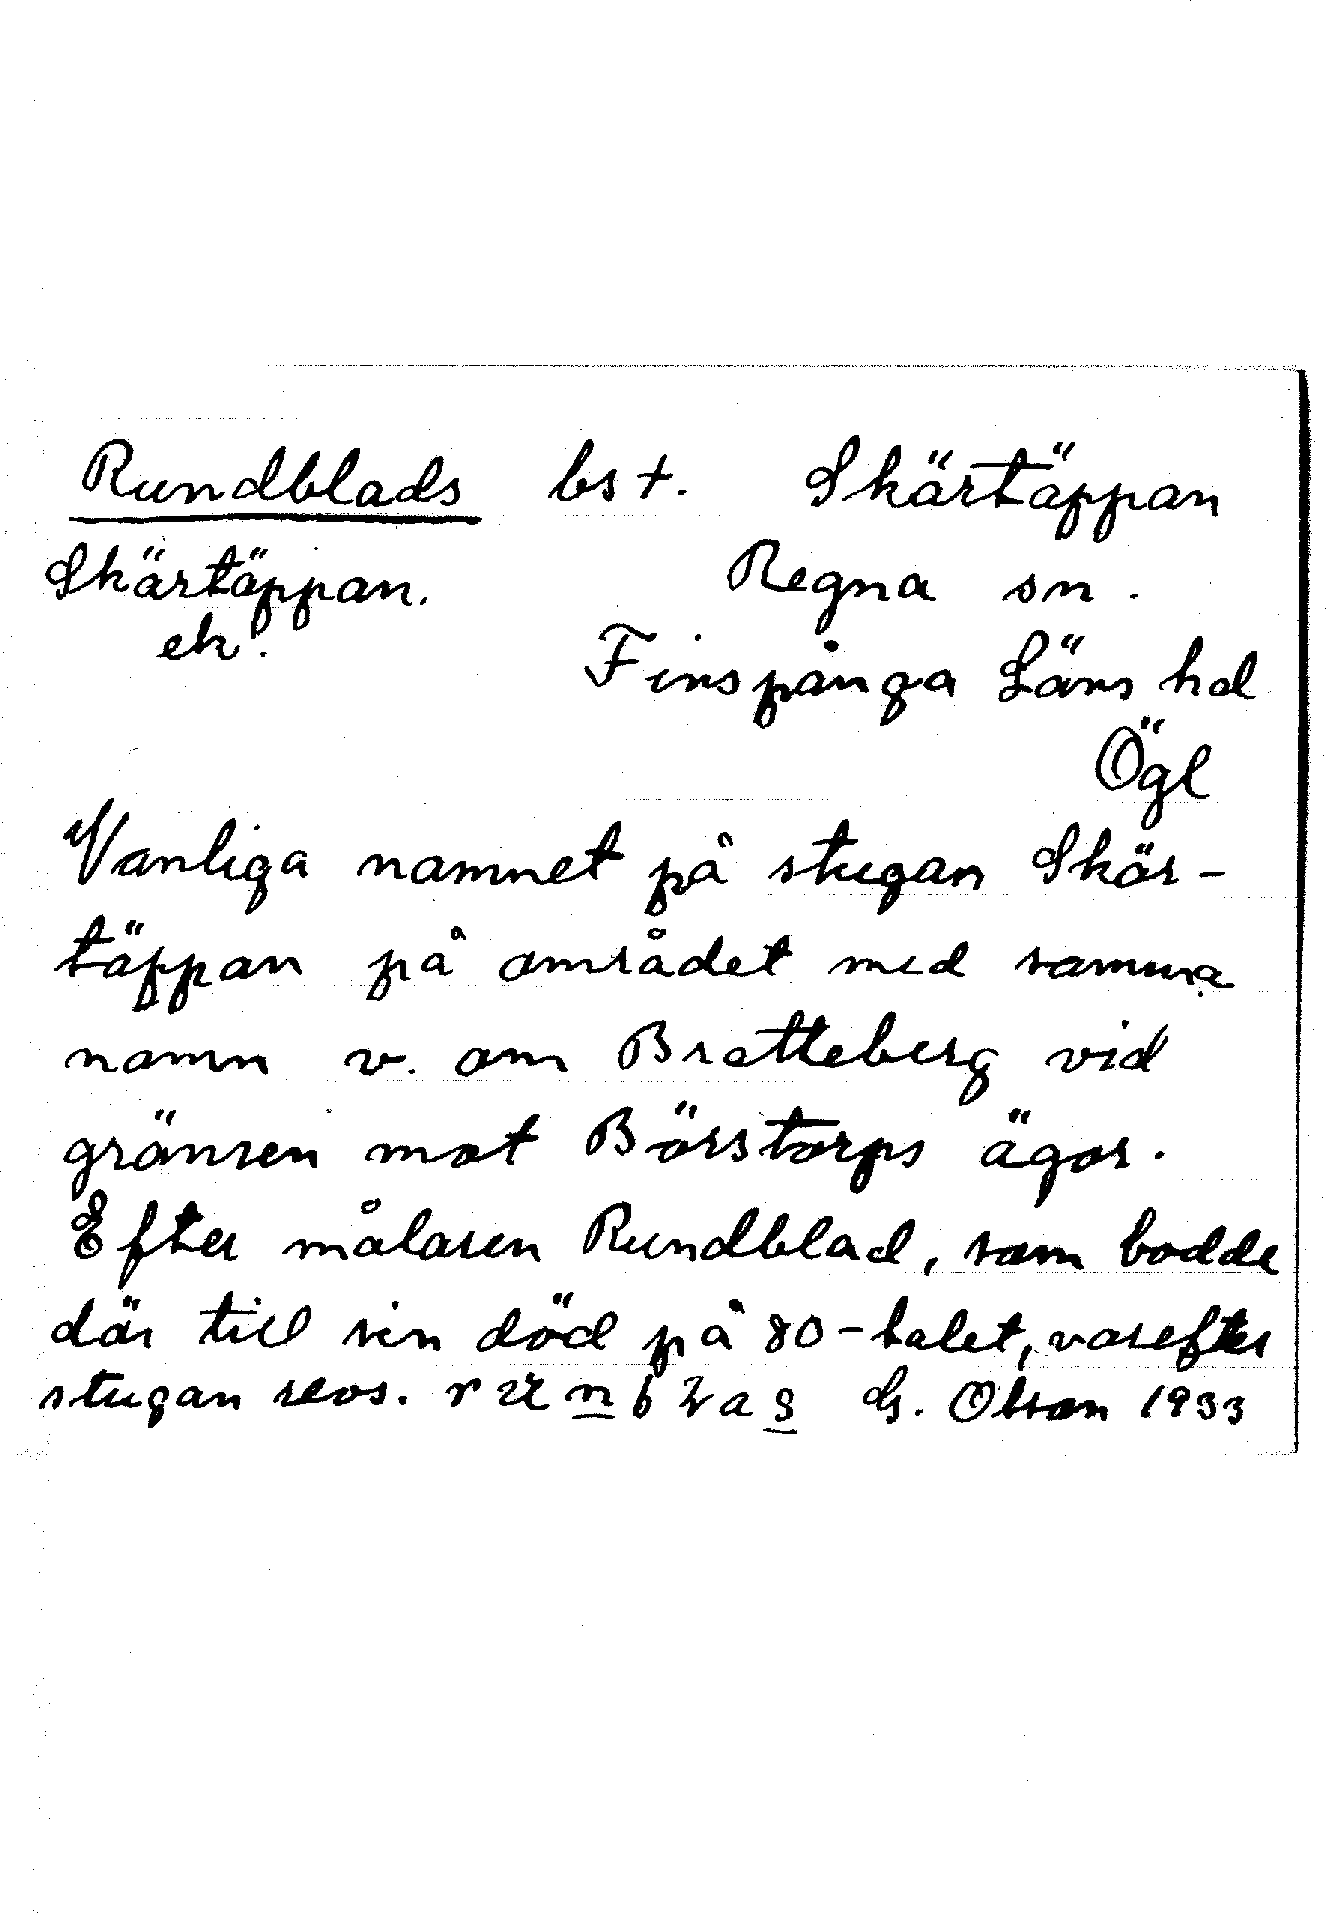 Rundblads bst. Skärtäppan
Skärtäppan. Regna sn.
ek. Finspånga Läns hd
Ögl
Vanliga namnet på stugan Skär-
täppan på området med samma
namn v. om Bratteberg vid
gränsen mot Börstorps ägor.
Efter målaren Rundblad, som bodde
där till sin död på 80-talet, varefter
stugan revs. G. Olson 1933